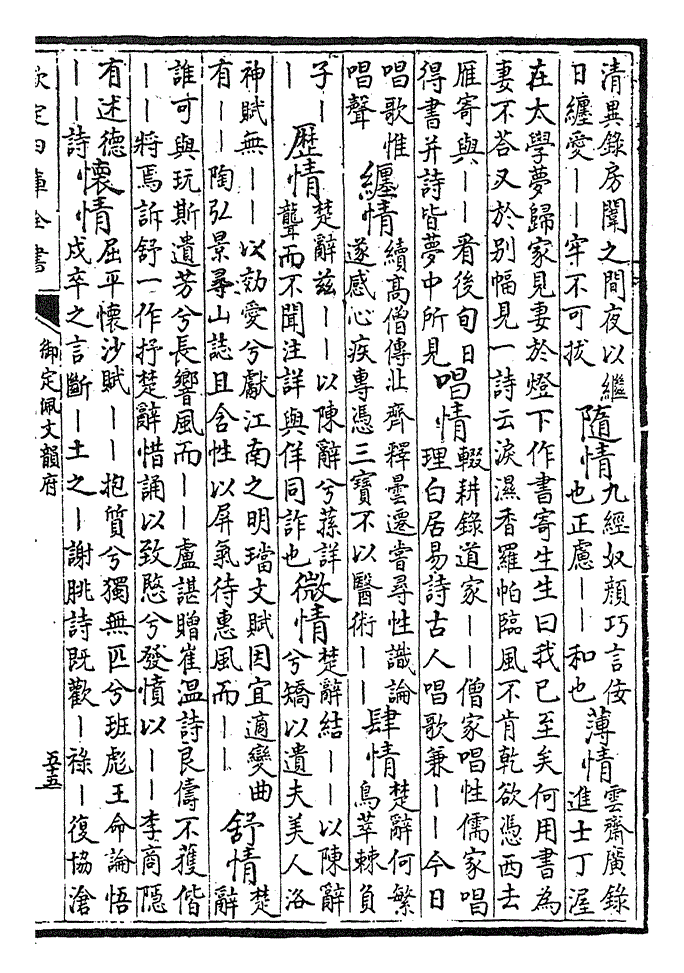 清異錄房闈之間夜以繼
日纏愛——牢不可拔
隨情
九經奴顏巧言佞
也正慮——和也
薄情
雲齋廣錄
進士丁渥
在太學夢歸家見妻於燈下作書寄生生曰我已至矣何用書為
妻不荅又於别幅見一詩云淚濕香羅帕臨風不肯乾欲憑西去
雁寄與——看後旬日
得書并詩皆夢中所見
唱情
輟耕錄道家——僧家唱性儒家唱
理白居易詩古人唱歌兼——今日
唱歌惟
唱聲
纏情
續高僧傳北齊釋曇遷嘗尋性識論
遂感心疾專憑三寶不以醫術——
肆情
楚辭何繁
鳥萃棘負
子—
—
歷情
楚辭兹——以陳辭兮蓀詳
聾而不聞注詳與佯同詐也
微情
楚辭結——以陳辭
兮矯以遺夫美人洛
神賦無——以効愛兮獻江南之明璫文賦因宜適變曲
有——陶弘景尋山誌且含性以屏氣待惠風而——
舒情
楚
辭
誰可與玩斯遺芳兮長嚮風而——盧諶贈崔温詩良儔不獲偕
——將焉訴舒一作抒楚辭惜誦以致愍兮發憤以——李商隱
有述德
——詩
懷情
屈平懷沙賦——抱質兮獨無匹兮班彪王命論悟
戍卒之言斷—土之—謝朓詩既歡—祿—復協滄
欽定四庫全書
御定佩文韻府
五十五